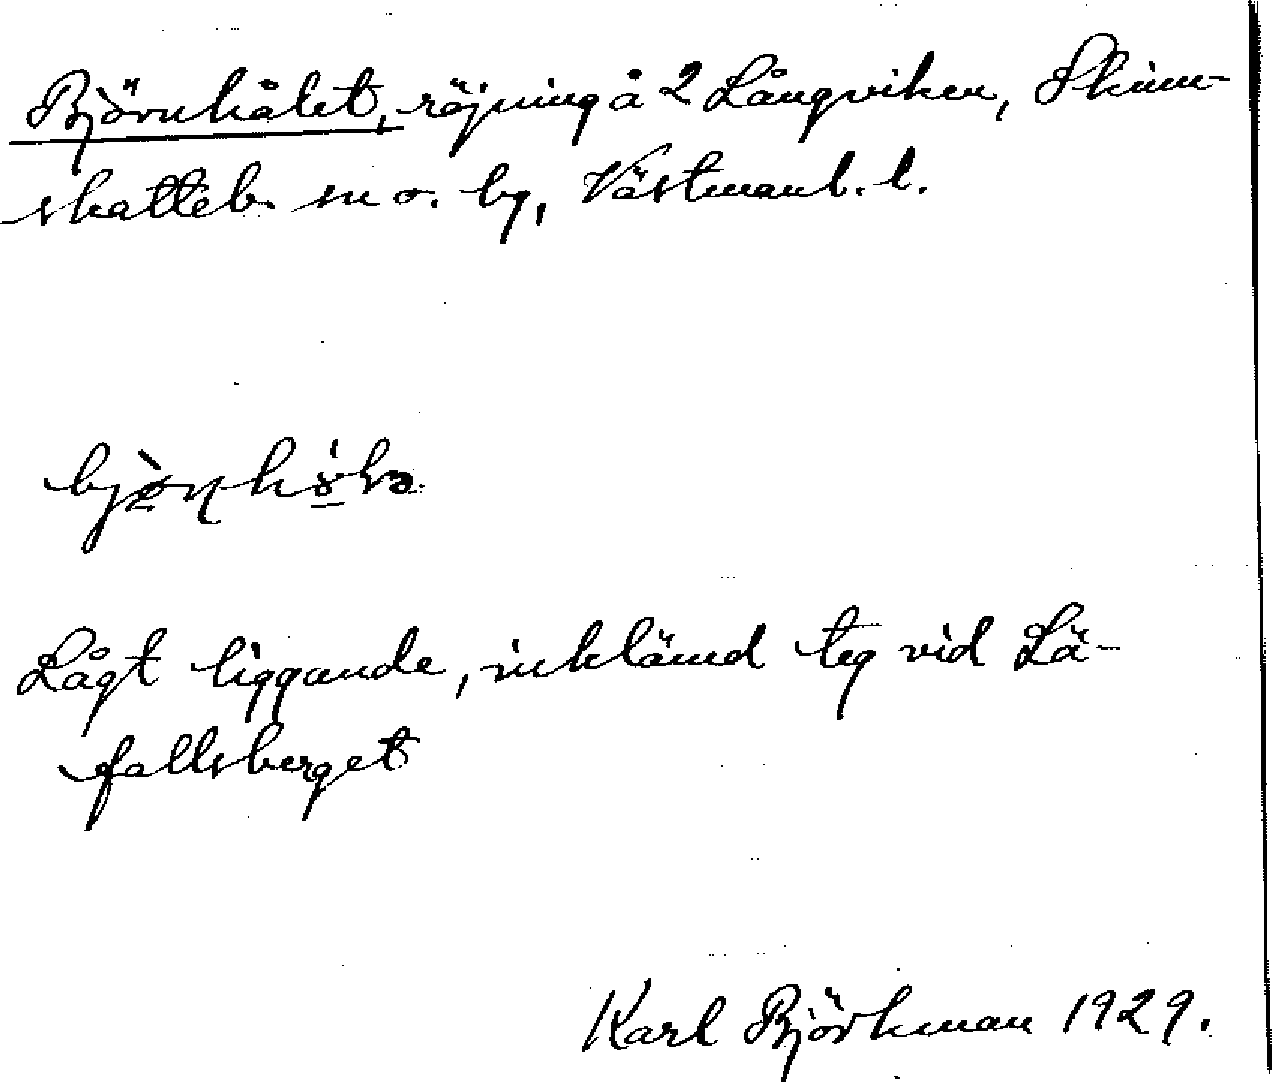 Björnhålet, röjning å 2 Långviken, Skinn-
skatteb. sn o. by, Västmanl. l.
Lågt liggande, inklämd teg vid Lä-
fallsberget
Karl Björkman 1929.